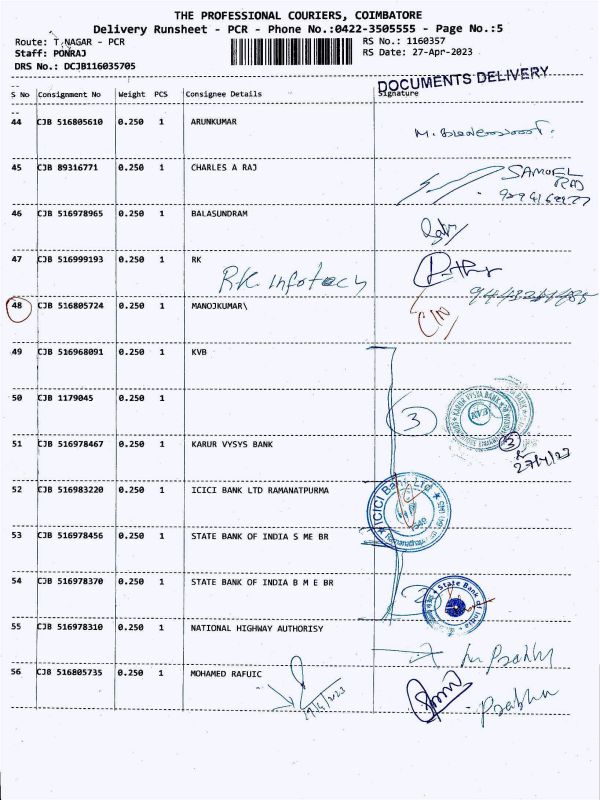 THE PROFESSIONAL COURIERS, COIMBATORE
Delivery Runsheet - PCR - Phone No.:0422-3505555 - Page No.:5
Route: T.NAGAR - PCR RS No.: 1160357
Staff: PONRAJ RS Date: 27-Apr-2023
DRS No.: DCJB116035705
DOCUMENTS DELIVERY
S No Consignment No Weight PCS Consignee Details Signature
44 CJB 516805610 0.250 1 ARUNKUMAR
45 CJB 89316771 0.250 1 CHARLES A RAJ SAMUEL RAJ
46 CJB 516978965 0.250 1 BALASUNDRAM
47 CJB 516999193 0.250 1 RK
RK Infotech
48 CJB 516805724 0.250 1 MANOJKUMAR\
49 CJB 516968091 0.250 1 KVB
50 CJB 1179045 0.250 1
3 KARUR VYSYA BANK KVB
3
51 CJB 516978467 0.250 1 KARUR VYSYS BANK
27/4/23
52 CJB 516983220 0.250 1 ICICI BANK LTD RAMANATPURMA
ICICI Bank Ltd
53 CJB 516978456 0.250 1 STATE BANK OF INDIA S ME BR
54 CJB 516978370 0.250 1 STATE BANK OF INDIA B M E BR
2 State Bank of India
55 CJB 516978310 0.250 1 NATIONAL HIGHWAY AUTHORISY
56 CJB 516805735 0.250 1 MOHAMED RAFUIC
29/4/2023
Prabhu